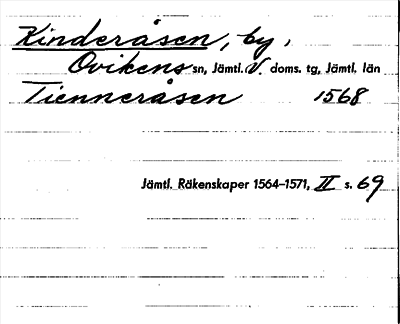 Kinderåsen, by,
Ovikens sn, Jämtl. V. doms. tg, Jämtl. län
Tienneråsen 1568
Jämtl. Räkenskaper 1564–1571, II s. 69